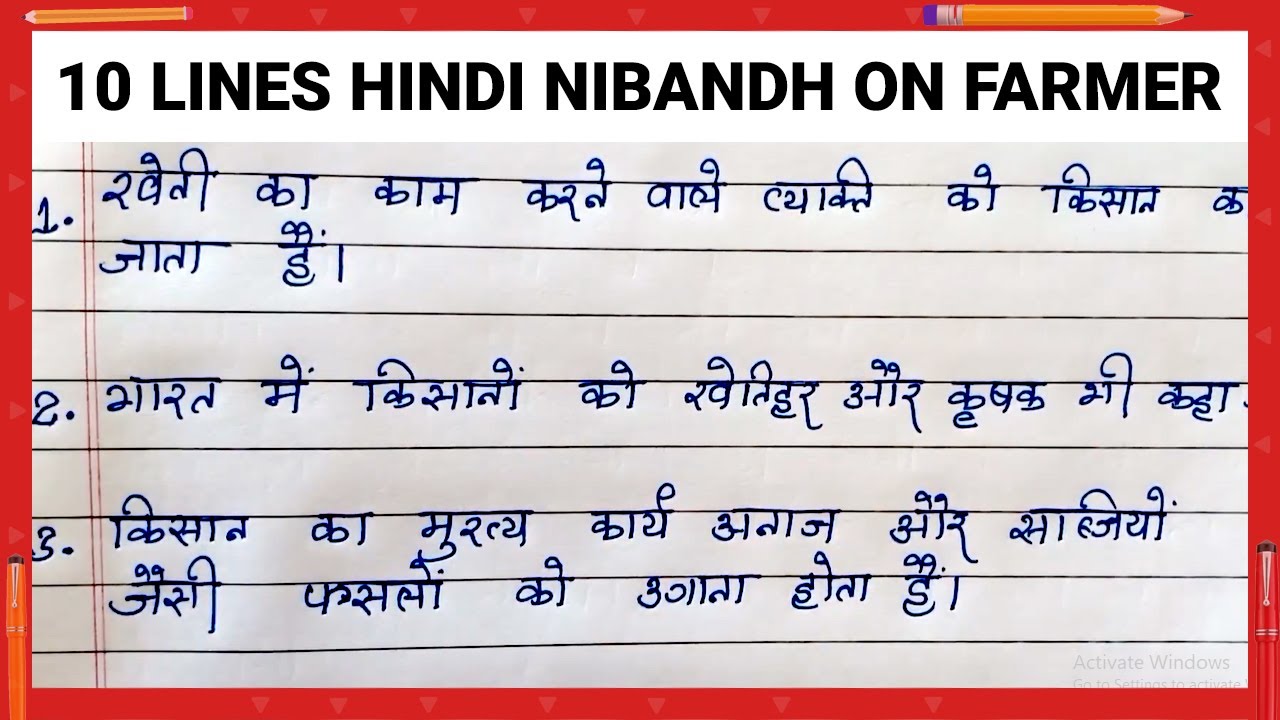 10 LINES HINDI NIBANDH ON FARMER
1. खेती का काम करने वाले व्यक्ति को किसान क
जाता हैं।
2. भारत में किसानों को खेतिहर और कृषक भी कहा
3. किसान का मुख्य कार्य अनाज और सब्जियों
जैसी फसलों को उगाना होता हैं।
Activate Windows
Go to Settings to activate